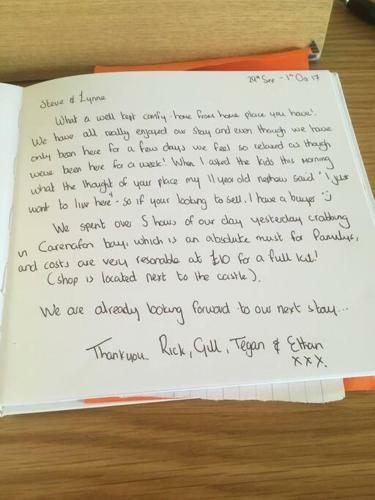 29th Sep - 1st Oc 17
Steve & Lynne
What a well kept comfy home from home place you have!
We have all really enjoyed our stay and even though we have
only been here for a few days we feel so relaxed as though
weve been here for a week! When I asked the kids this morning
what the thought of your place my 11 year old nephew said "I just
want to live here" - so if your looking to sell, I have a buyer :)
We spent over 5 hours of our day yesterday crabbing
in Carenafon bay, which is an absolute must for familys,
and costs are very resonable at £10 for a full kit!
(shop is located next to the castle).
We are already looking forward to our next stay...
Thankyou Rick, Gill, Tegan & Ethan
xxx.